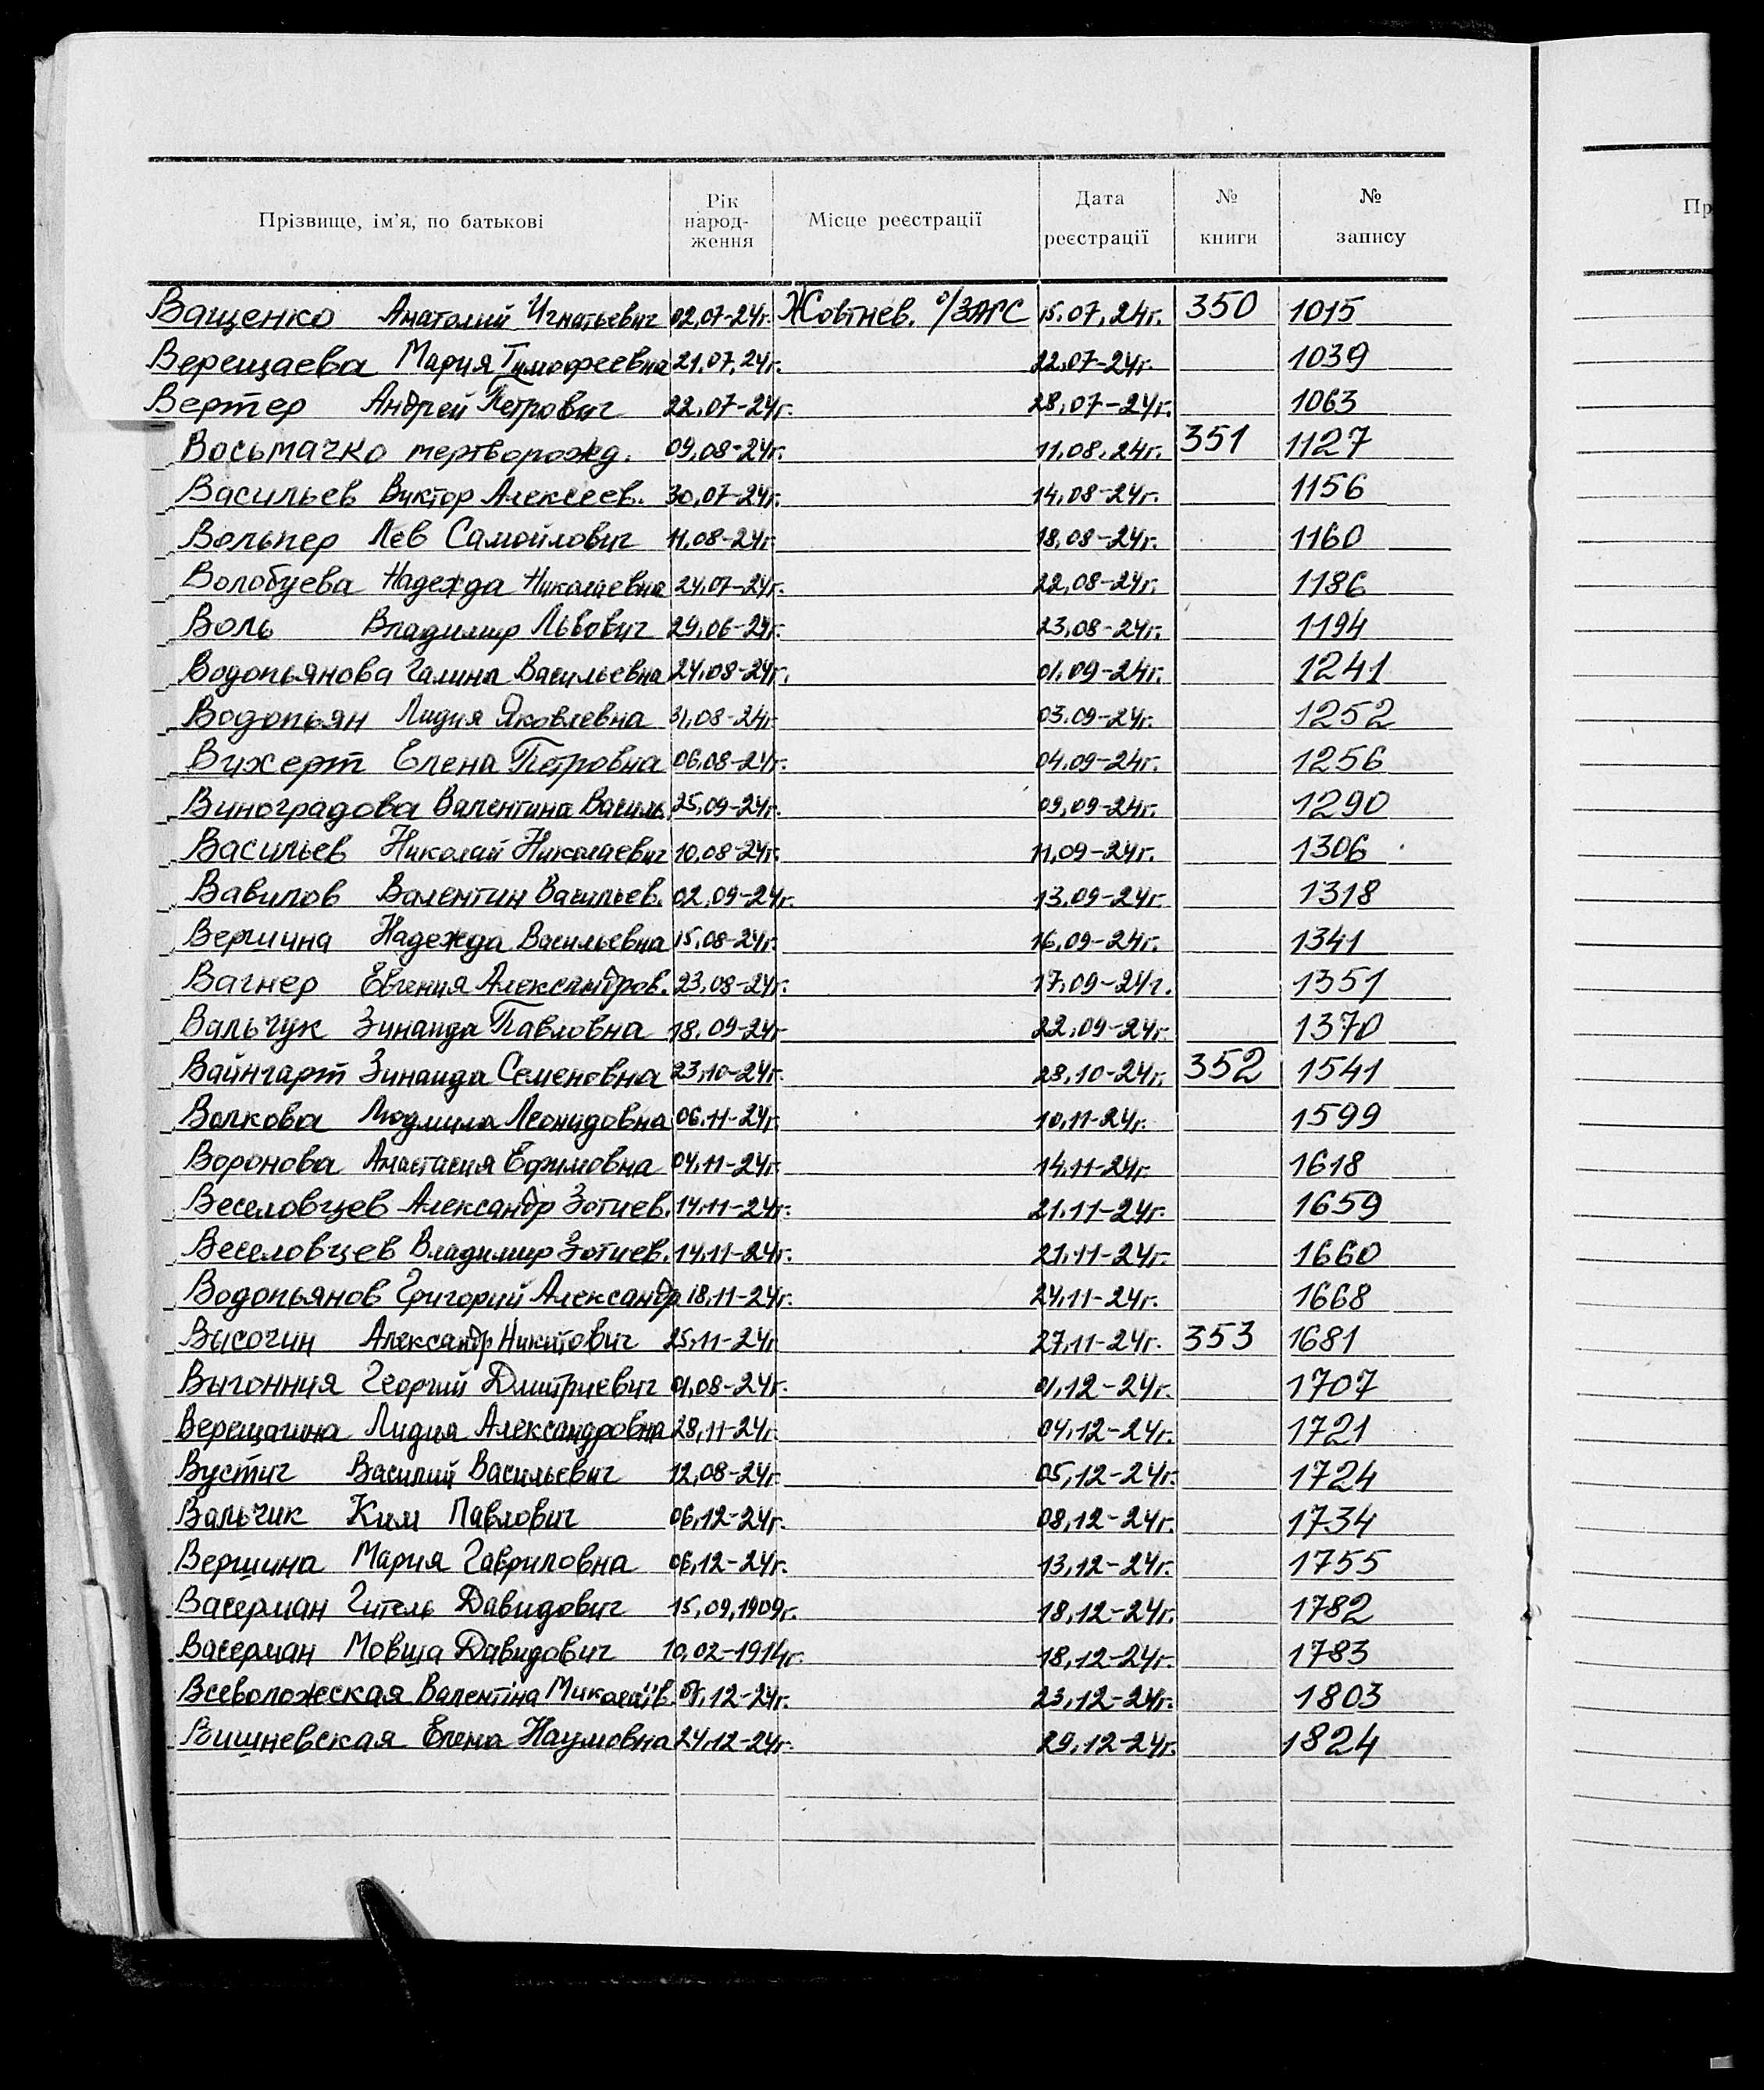 Прізвище, ім'я, по батькові Рік народ- ження Місце реєстрації Дата реєстрації № книги № запису Пр
Ващенко Анатолий Игнатьевич 02.07-24г. Жовтнев. о/ЗАГС 15.07.24г. 350 1015
Верещаева Мария Тимофеевна 21.07.24г. 22.07-24г. 1039
Вертер Андрей Петрович 22.07-24г. 28.07-24г. 1063
Восьмачко мертворожд. 09.08-24г. 11.08.24г. 351 1127
Васильев Виктор Алексеев. 30.07-24г. 14.08-24г. 1156
Вольпер Лев Самойлович 11.08-24г. 18.08-24г. 1160
Волобуева Надежда Николаевна 24.07-24г. 22.08-24г. 1186
Воль Владимир Львович 29.06-24г. 23.08-24г. 1194
Водопьянова Галина Васильевна 24.08-24г. 01.09-24г. 1241
Водопьян Лидия Яковлевна 31.08-24г. 03.09-24г. 1252
Вихерт Елена Петровна 06.08-24г. 04.09-24г. 1256
Виноградова Валентина Василь. 25.09-24г. 09.09-24г. 1290
Васильев Николай Николаевич 10.08-24г. 11.09-24г. 1306
Вавилов Валентин Васильев. 02.09-24г. 13.09-24г. 1318
Вершина Надежда Васильевна 15.08-24г. 16.09-24г. 1341
Вагнер Евгения Александров. 23.08-24г. 17.09-24г. 1351
Вальчук Зинаида Павловна 18.09-24г 22.09-24г. 1370
Вайнгарт Зинаида Семеновна 23.10-24г. 28.10-24г. 352 1541
Волкова Людмила Леонидовна 06.11-24г. 10.11-24г. 1599
Воронова Анастасия Ефимовна 04.11-24г. 14.11-24г. 1618
Веселовцев Александр Зотиев. 14.11-24г. 21.11-24г. 1659
Веселовцев Владимир Зотиев. 14.11-24г. 21.11-24г. 1660
Водопьянов Григорий Александр. 18.11-24г. 24.11-24г. 1668
Высочин Александр Никитович 25.11-24г 27.11-24г. 353 1681
Выгонния Георгий Дмитриевич 01.08-24г. 01.12-24г. 1707
Верещагина Лидия Александровна 28.11-24г. 04.12-24г. 1721
Вустич Василий Васильевич 12.08-24г. 05.12-24г. 1724
Вальчик Ким Павлович 06.12-24г. 08.12-24г. 1734
Вершина Мария Гавриловна 06.12-24г. 13.12-24г. 1755
Васерман Гитель Давидович 15.09.1909г. 18.12-24г. 1782
Васерман Мовша Давидович 10.02-1914г. 18.12-24г. 1783
Всеволожская Валентіна Миколаїв. 12-24г. 23.12-24г. 1803
Вишневская Елена Наумовна 24.12-24г. 29.12-24г. 1824